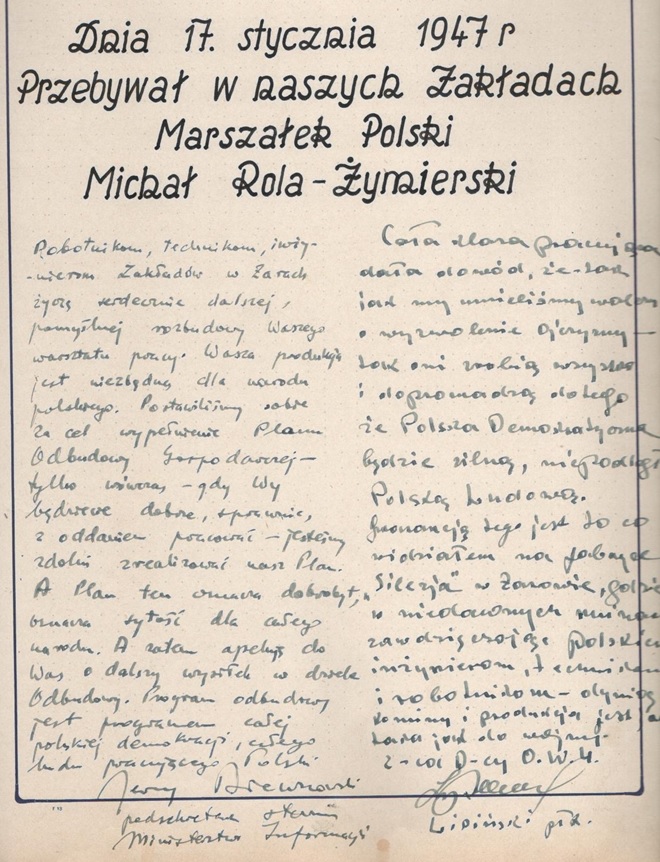 Dnia 17. stycznia 1947 r
Przebywał w naszych Zakładach
Marszałek Polski
Michał Rola-Żymierski
Robotnikom, technikom, inży-
-nierom Zakładów w Żarach
życzę serdecznie dalszej,
pomyślnej rozbudowy Waszego
warsztatu pracy. Wasza produkcja
jest niezbędną dla narodu
polskiego. Postawiliśmy sobie
za cel wypełnienie Planu
Odbudowy Gospodarczej —
tylko wówczas - gdy Wy
będziecie dobrze, sprawnie,
z oddaniem pracować - jesteśmy
zdolni zrealizować nasz Plan.
A Plan ten oznacza dobrobyt,
oznacza sytość dla całego
narodu. A zatem apeluję do
Was o dalszy wysiłek w dziele
Odbudowy. Program odbudowy
jest programem całej
polskiej demokracji, całego
ludu pracującego Polski
Jerzy
podsekretarz stanu
Ministerstwo Informacji
Cała klasa pracująca
dała dowód, że tak
jak my umieliśmy
o wyzwolenie ojczyzny —
tak oni zrobią wszystko
i doprowadzą do tego
że Polska Demokratyczna
będzie silną,
Polską Ludową.
Gwarancją tego jest to co
widziałem na fabryce
„Silezja" w Żarowie, gdzie
w niedawnych
zawdzięczając
inżynierom,
i robotnikom - dymią
kominy i produkcja jest
taka jak do wojny.
z-ca D-cy O.W.4.
Lipiński płk.